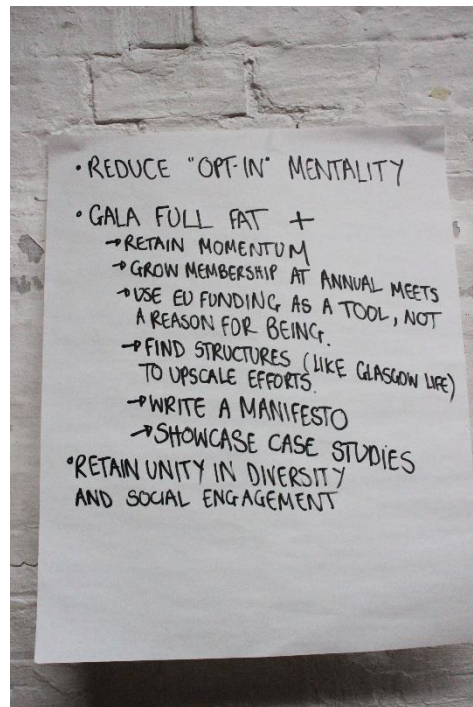 • REDUCE "OPT-IN" MENTALITY
• GALA FULL FAT +
→ RETAIN MOMENTUM
→ GROW MEMBERSHIP AT ANNUAL MEETS
→ USE EU FUNDING AS A TOOL, NOT
A REASON FOR BEING.
→ FIND STRUCTURES (LIKE GLASGOW LIFE)
TO UPSCALE EFFORTS.
→ WRITE A MANIFESTO
→ SHOWCASE CASE STUDIES
• RETAIN UNITY IN DIVERSITY
AND SOCIAL ENGAGEMENT